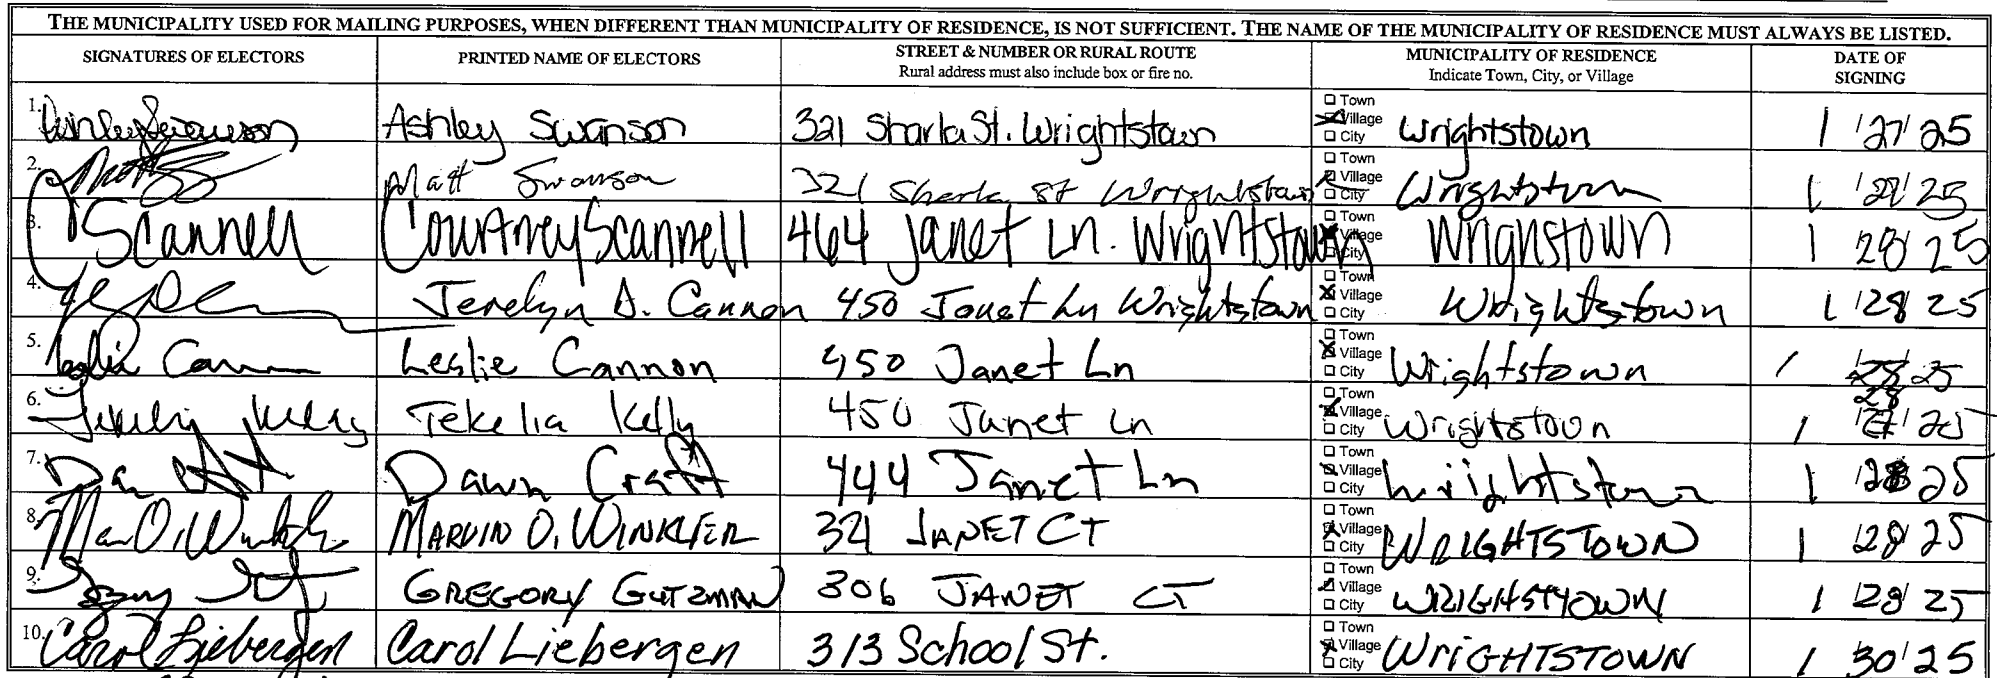 THE MUNICIPALITY USED FOR MAILING PURPOSES, WHEN DIFFERENT THAN MUNICIPALITY OF RESIDENCE, IS NOT SUFFICIENT. THE NAME OF THE MUNICIPALITY OF RESIDENCE MUST ALWAYS BE LISTED.
SIGNATURES OF ELECTORS PRINTED NAME OF ELECTORS STREET & NUMBER OR RURAL ROUTE Rural address must also include box or fire no. MUNICIPALITY OF RESIDENCE Indicate Town, City, or Village DATE OF SIGNING
1. Ashley Swanson Ashley Swanson 321 Sharla St. Wrightstown Town Village City Wrightstown 1/27/25
2. Matt Swanson 321 Sharla St Wrightstown Town Village City Wrightstown 1/28/25
3. CScannell Courtney Scannell 464 Janet Ln. Wrightstown Town Village City Wrighstown 1 28/25
4. Jerelyn A. Cannon 450 Janet Ln Wrightstown Town Village City Wrightstown 1/28/25
5. Leslie Cannon Leslie Cannon 450 Janet Ln Town Village City Wrightstown 1/28/25
6. Tekelia Kelly 450 Janet Ln Town Village City Wrightstown 1/28/25
7. Dawn Craft 444 Janet Ln Town Village City Wrightstown 1/28/25
8. Mar O. Winkler MARVIN O. WINKLER 321 JANET CT Town Village City WRIGHTSTOWN 1/28/25
9. GREGORY GUTZMAN 306 JANET CT Town Village City WRIGHSTTOWN 1/28/25
10. Carol Liebergen Carol Liebergen 313 School St. Town Village City WRIGHTSTOWN 1/30/25